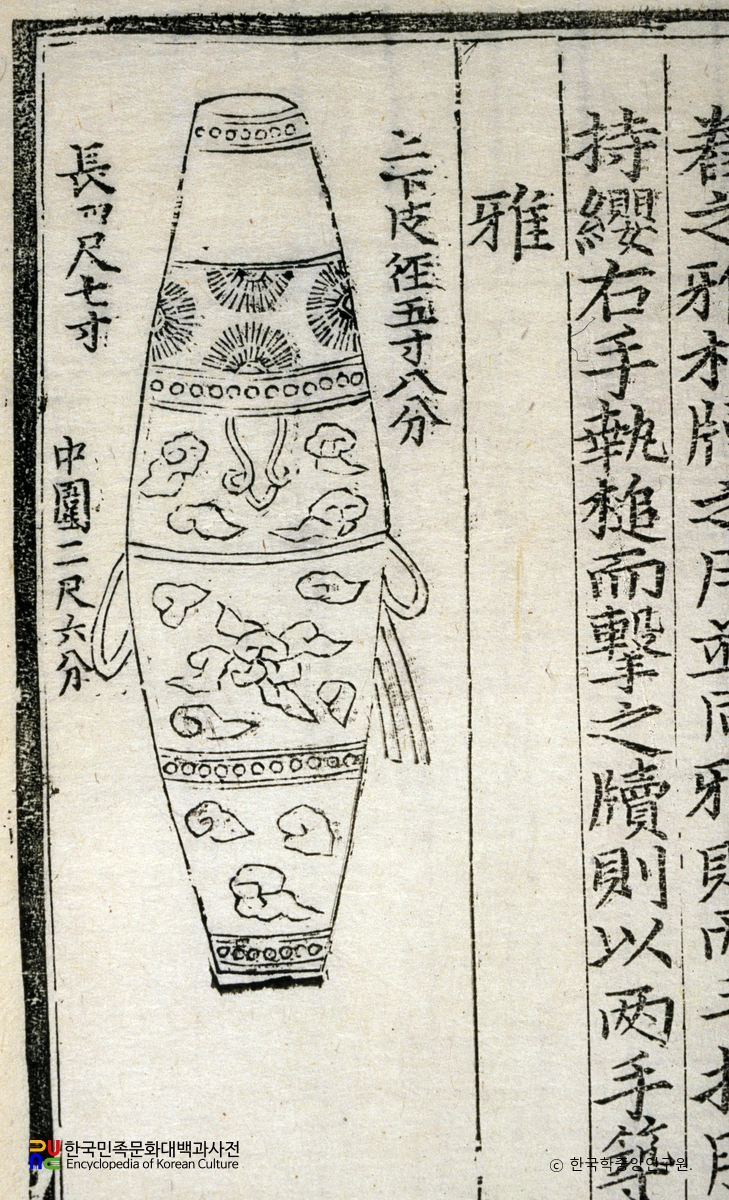 之雅木牘之用並同雅則
持纓右手執槌而擊之牘則以两手築
雅
上下皮径五寸八分
長四尺七寸
中圍二尺六分
한국민족문화대백과사전
Encyclopedia of Korean Culture
© 한국학중앙연구원.